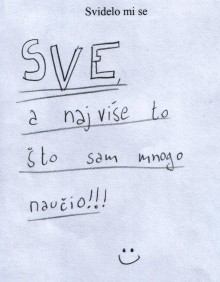 Svidelo mi se
SVE,
a najviše to
što sam mnogo
naučio!!!